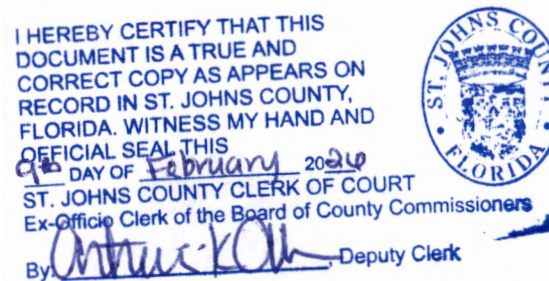 I HEREBY CERTIFY THAT THIS
DOCUMENT IS A TRUE AND
CORRECT COPY AS APPEARS ON
RECORD IN ST. JOHNS COUNTY,
FLORIDA. WITNESS MY HAND AND
OFFICIAL SEAL THIS
9th DAY OF February 2026
ST. JOHNS COUNTY CLERK OF COURT
Ex-Officio Clerk of the Board of County Commissioners
By: , Deputy Clerk
ST. JOHNS COUNTY
FLORIDA